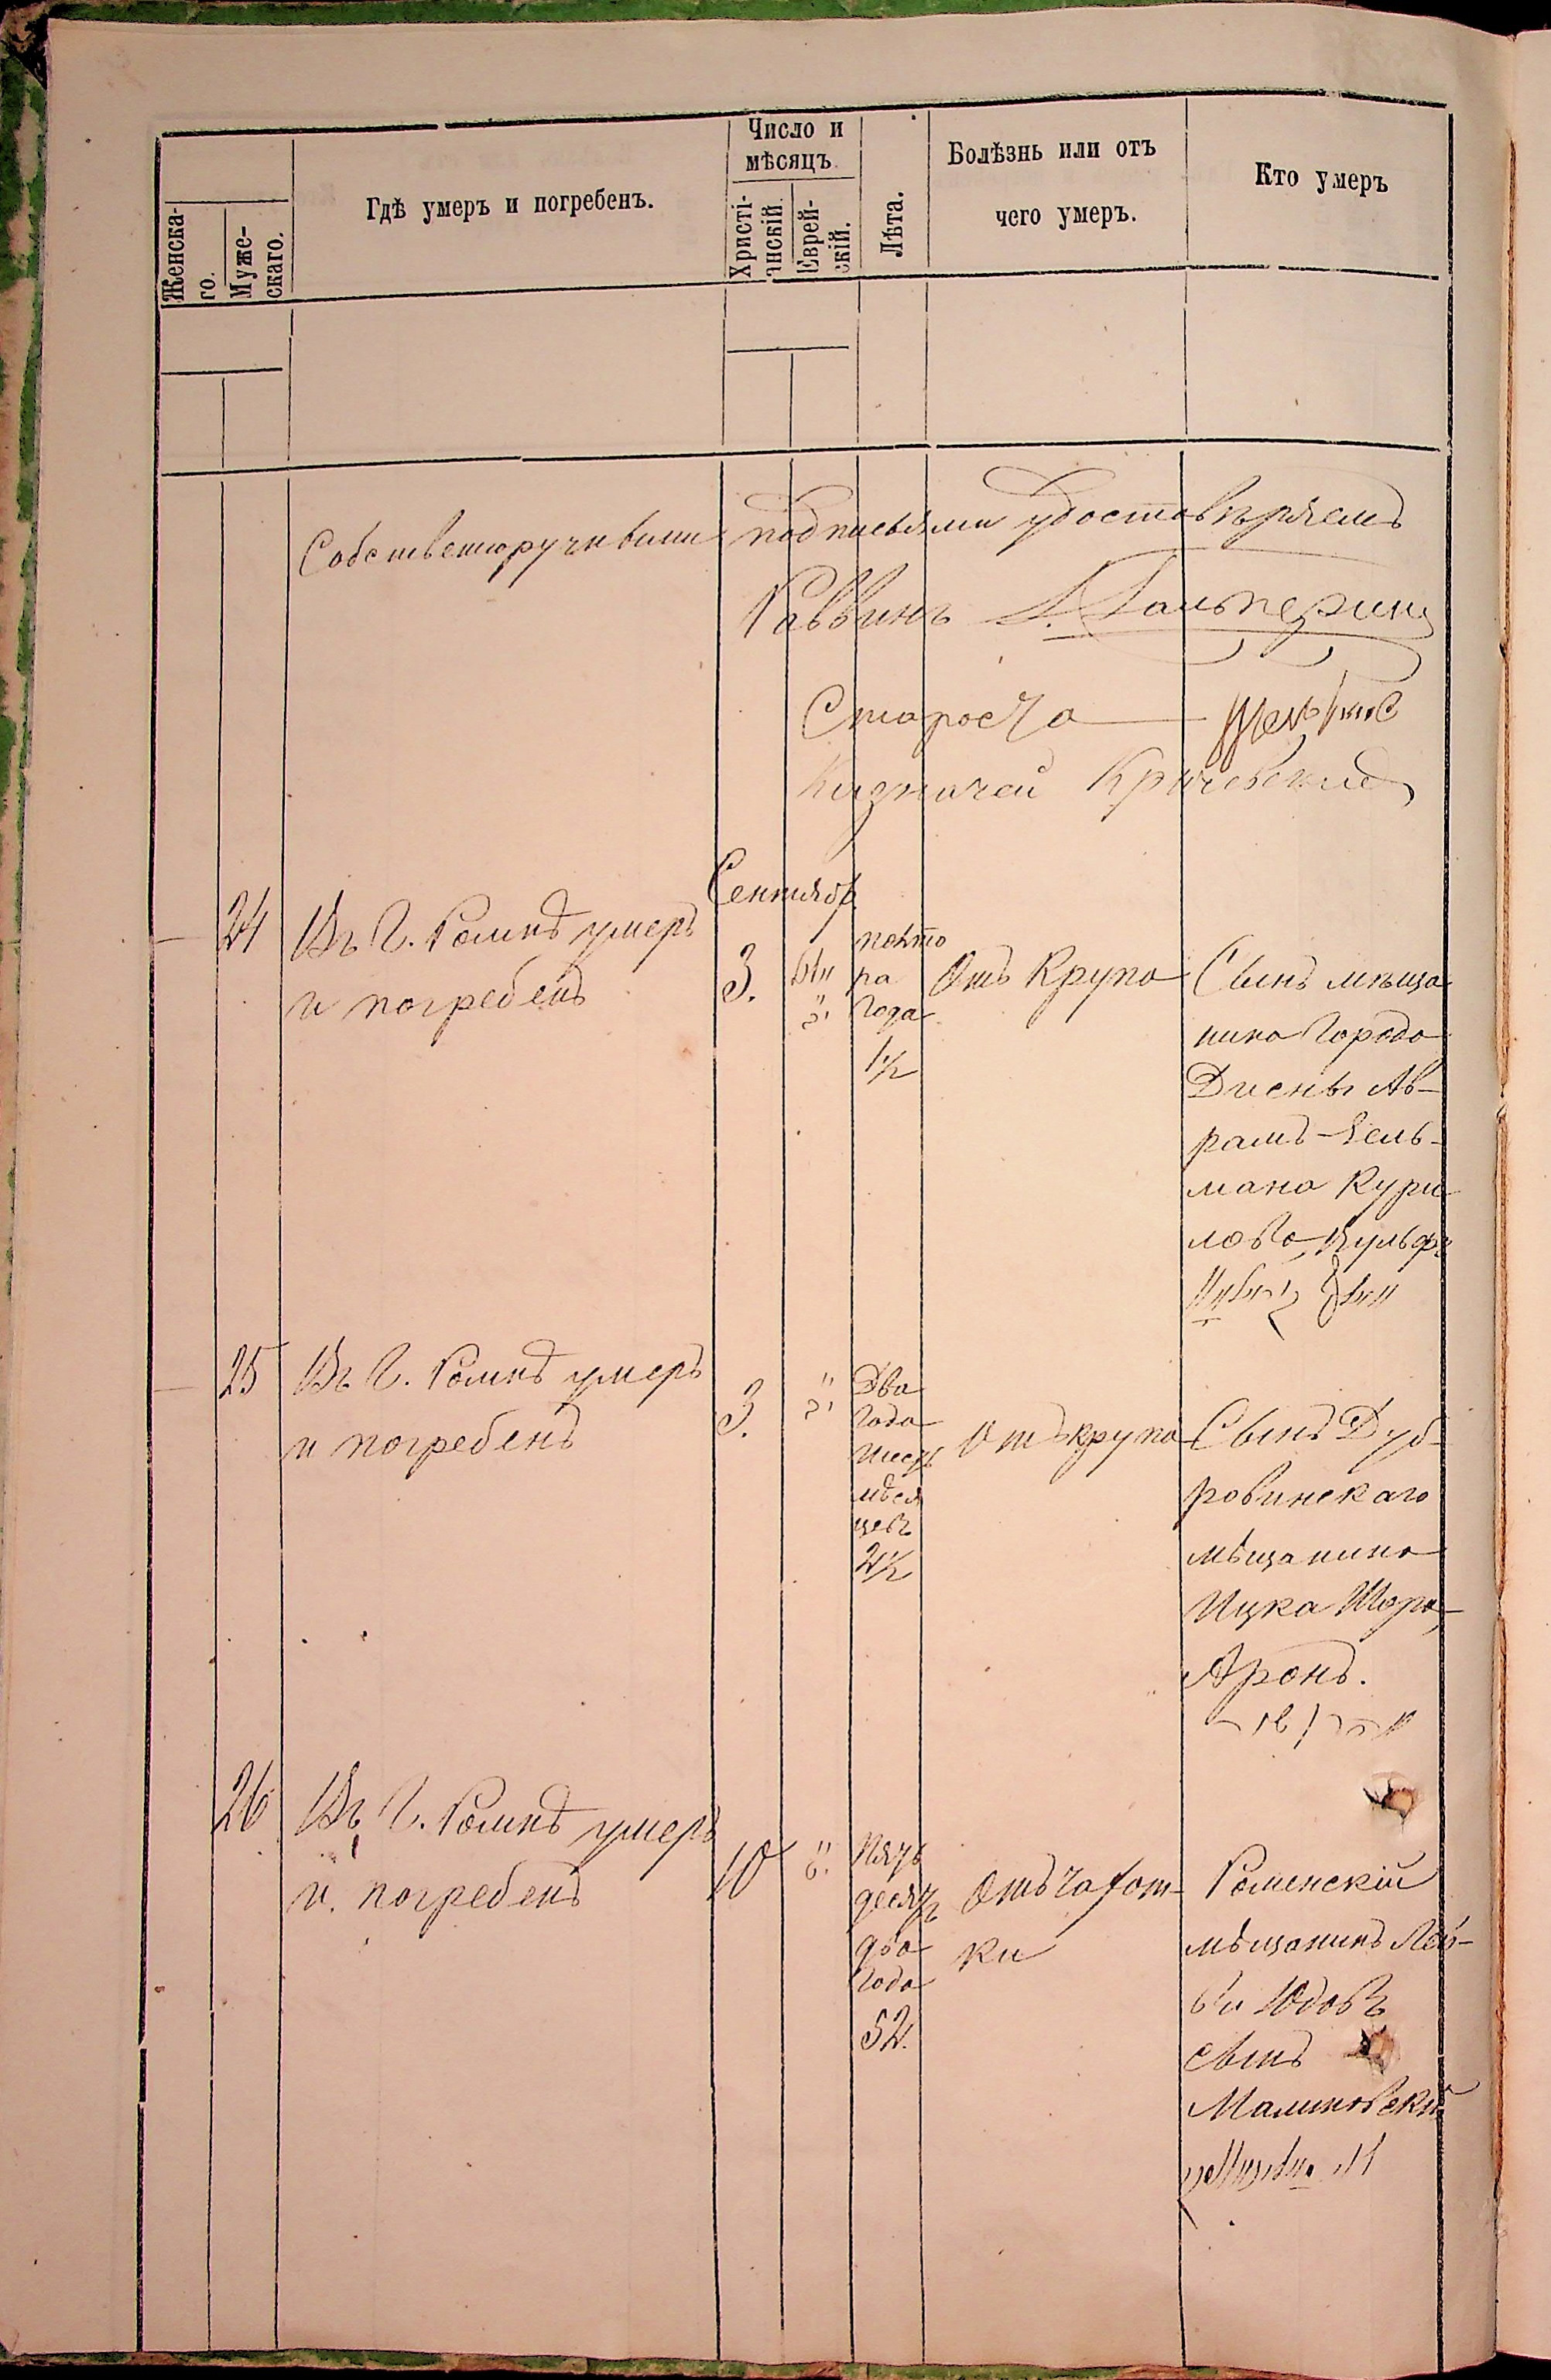 Женска-
го.
Муже-
скаго.
Гдѣ умеръ и погребенъ.
Число и
мѣсяцъ.
Христі-
анскій.
Еврей-
скій.
Лѣта.
Болѣзнь или отъ
чего умеръ.
Кто умеръ
Собственноручными подписьями удостовѣряемъ
Раввинъ Гальперинъ
Староста
Казначей Кричевский
Сентябр
24
Въ г. Ромнѣ умеръ
и погребенъ
3.
полто
ра
года
1½
Отъ Крупа
Сынъ мѣща
нина города
Дисны Ав-
рамъ-Зель-
мана Кури
лова, Вульфъ
25
Въ г. Ромнѣ умеръ
и погребенъ
3.
Два
года
шесть
мѣся
цевъ
2½
Отъ крупа
Сынъ Дуб-
ровинскаго
мѣщанина
Ицка Шора,
Аронъ.
26
Въ г. Ромнѣ умеръ
и погребенъ
10
Пять
десятъ
два
года
52.
Отъ чахот-
ки
Роменскій
мѣщанинъ Лей-
ба Юдовъ
сынъ
Малиновскій